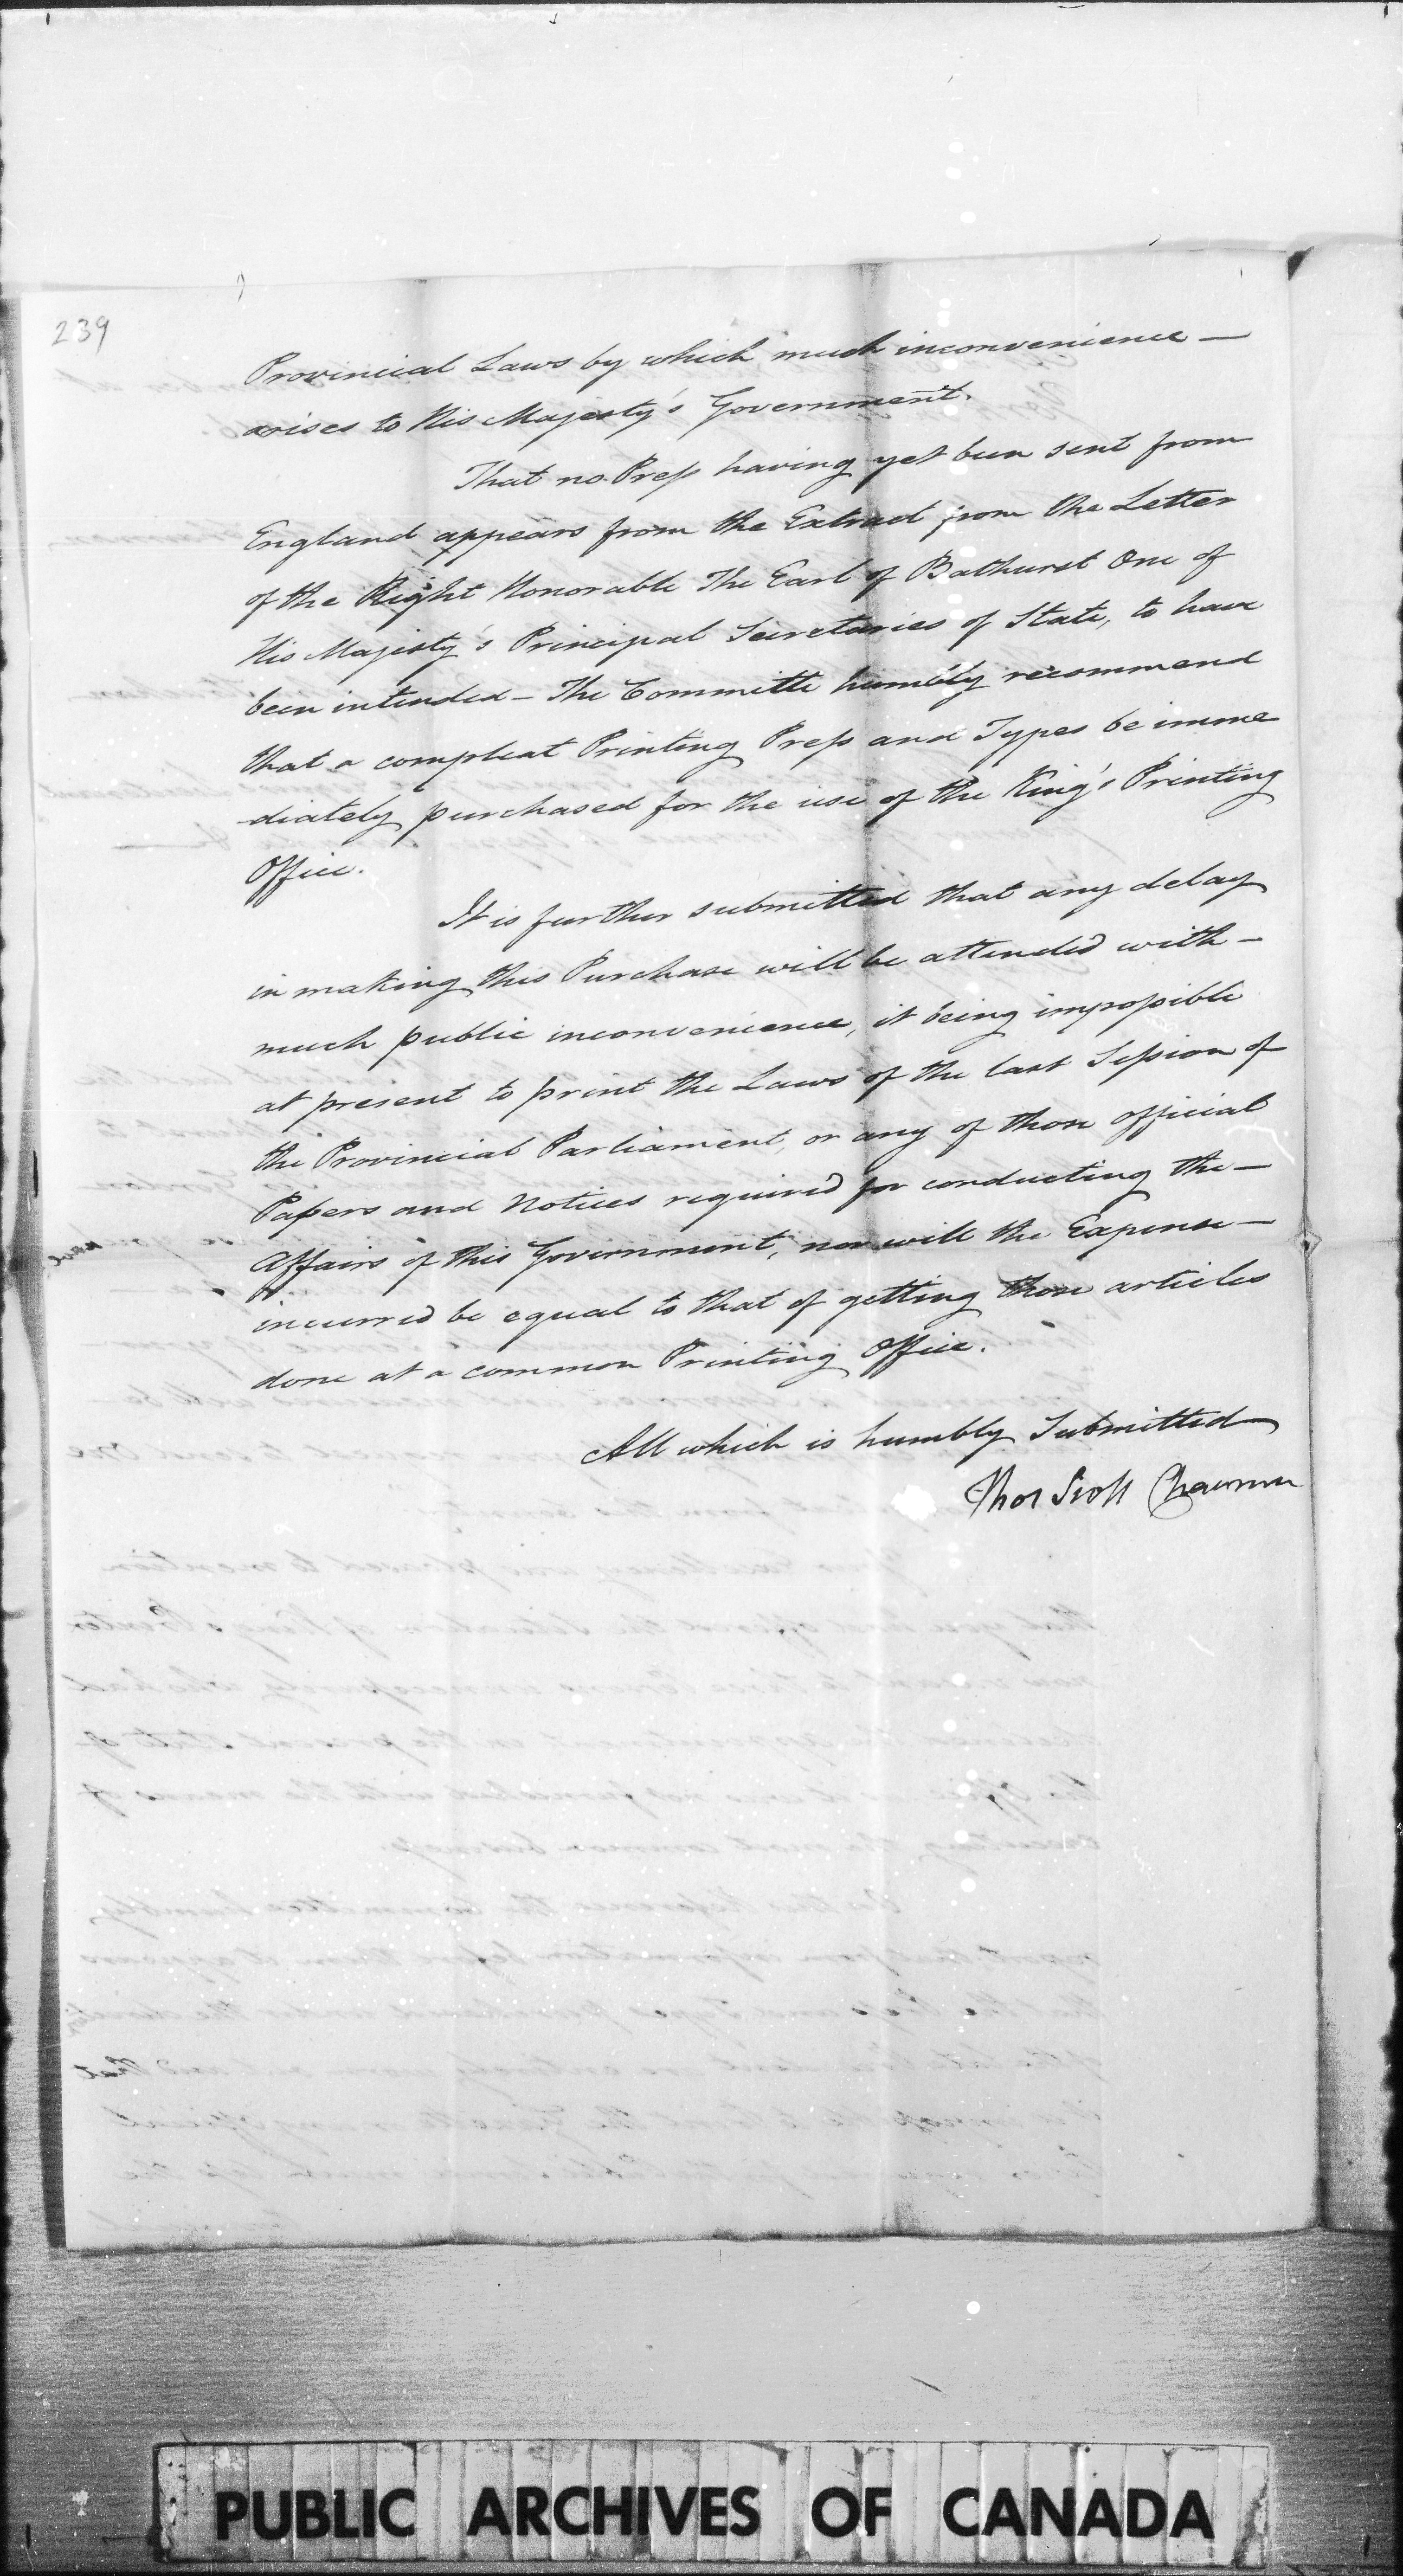 239
Provincial Laws by which much inconvenience —
arises to His Majesty's Government.
That no Press having yet been sent from
England appears from the Extract from the Letter
of the Right Honorable The Earl of Bathurst One of
His Majesty's Principal Secretaries of State, to have
been intended — The Committe humbly recommend
that a compleat Printing Press and Types be imme
-diately purchased for the use of the King's Printing
Office.
It is further submitted that any delay
in making this Purchase will be attended with —
much public inconvenience, it being impossible
at present to print the Laws of the last Session of
the Provincial Parliament, or any of those official
Papers and Notices required for conducting the —
Affairs of this Government, nor will the Expense —
incurred be equal to that of getting those articles
done at a common Printing Office.
All which is humbly Submitted
Thos Scott Chairman
PUBLIC ARCHIVES OF CANADA